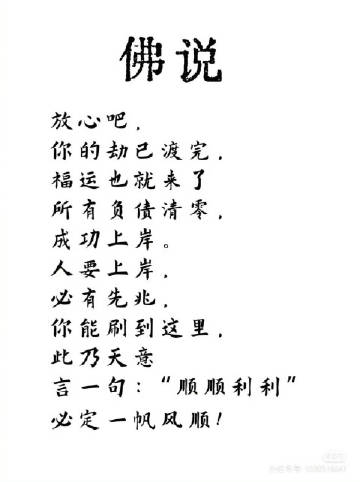 佛说
放心吧，
你的劫已渡完，
福运也就来了
所有负债清零，
成功上岸。
人要上岸，
必有先兆，
你能刷到这里，
此乃天意
言一句：“顺顺利利”
必定一帆风顺！